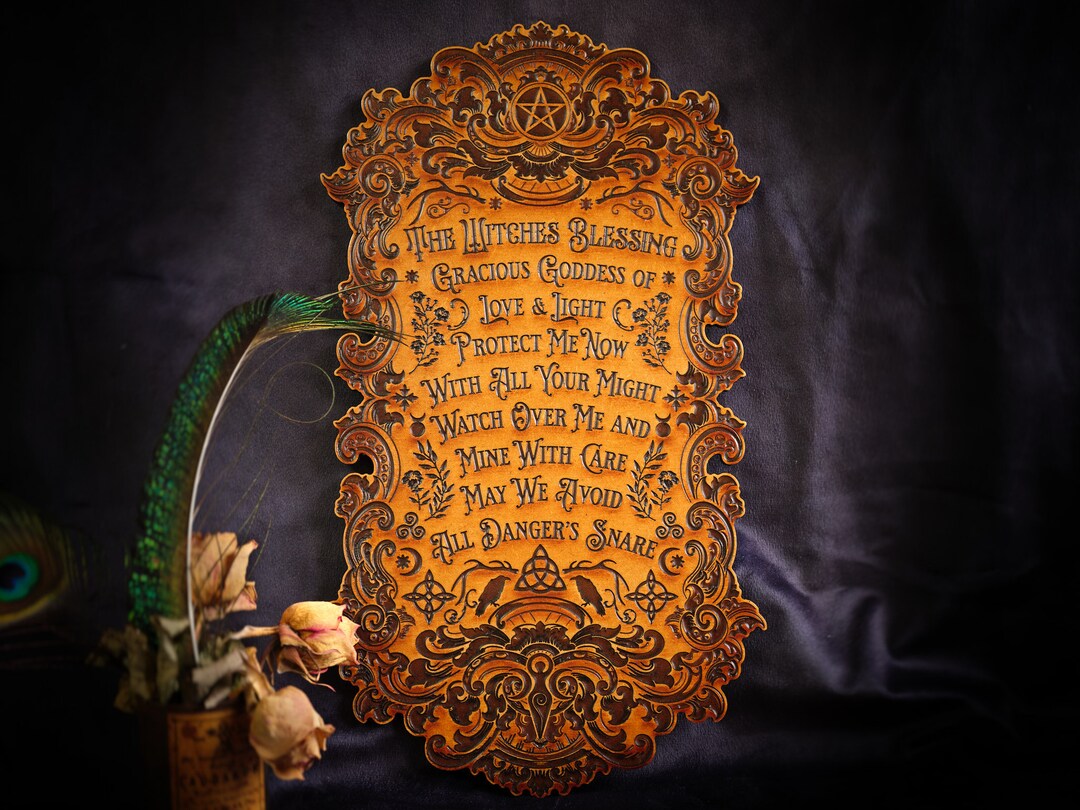 The Witches Blessing
Gracious Goddess of
Love & Light
Protect Me Now
With All Your Might
Watch Over Me and
Mine With Care
May We Avoid
All Danger's Snare